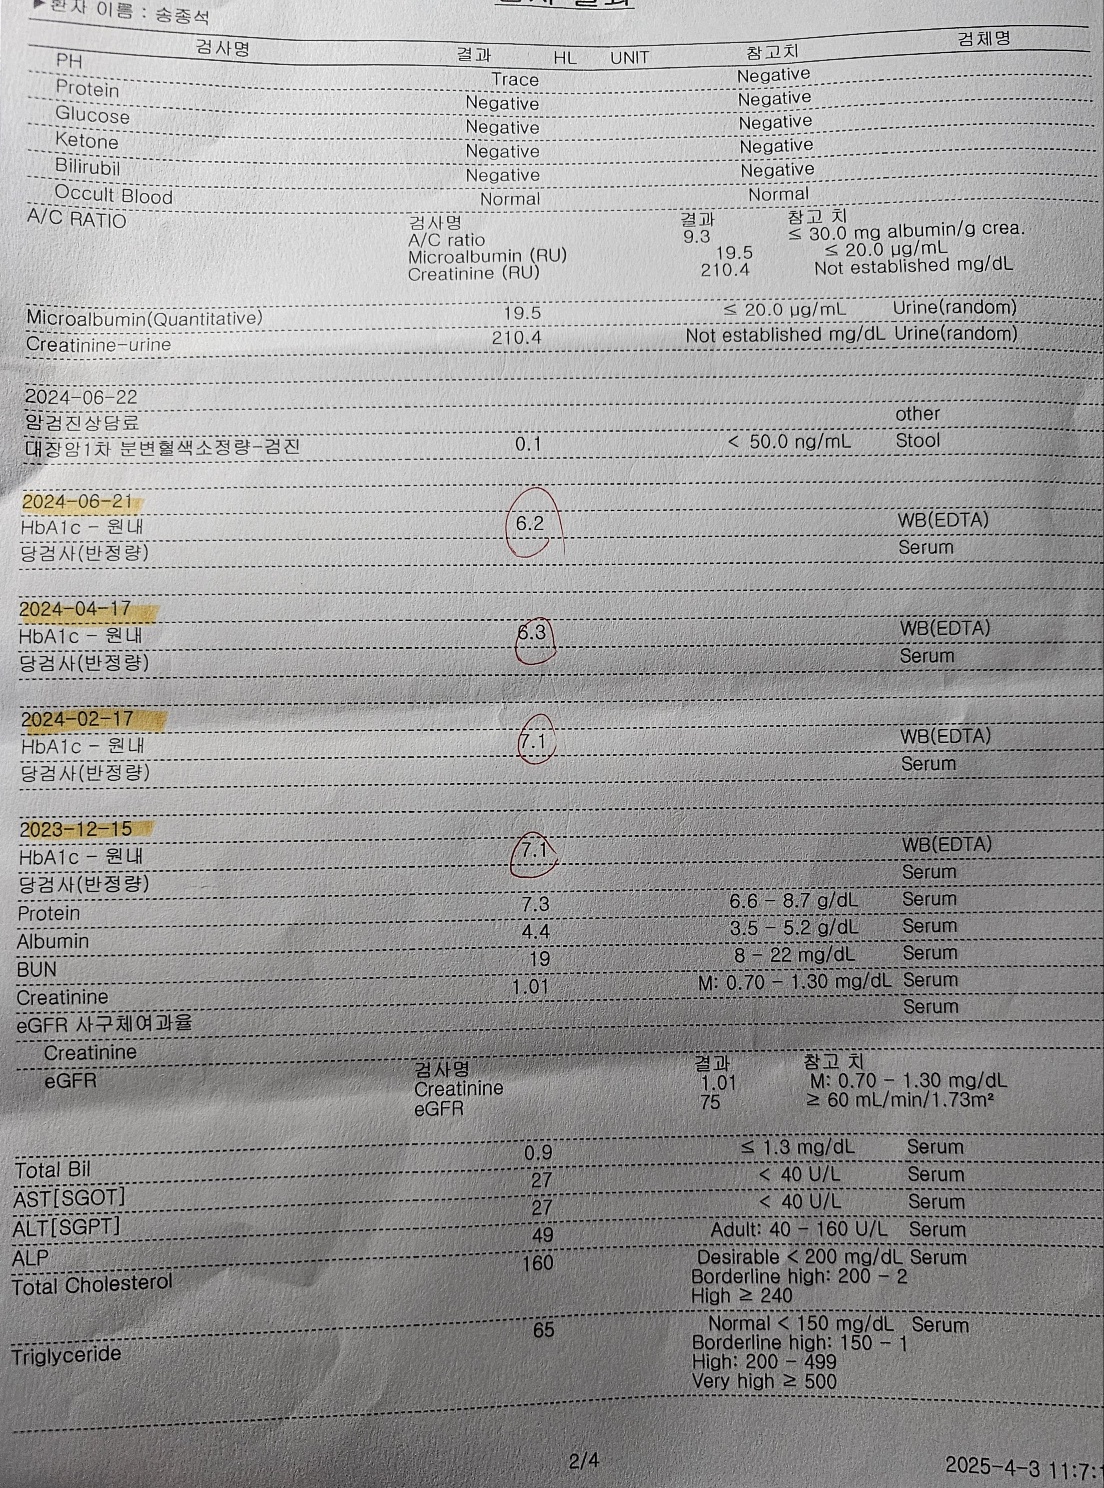 ▶환자 이름 : 송종석
검사명 결과 HL UNIT 참고치 검체명
PH
Protein Trace Negative
Glucose Negative Negative
Ketone Negative Negative
Bilirubil Negative Negative
Occult Blood Negative Negative
A/C RATIO Normal Normal
검사명 결과 참고 치
A/C ratio 9.3 ≤ 30.0 mg albumin/g crea.
Microalbumin (RU) 19.5 ≤ 20.0 μg/mL
Creatinine (RU) 210.4 Not established mg/dL
Microalbumin(Quantitative) 19.5 ≤ 20.0 μg/mL Urine(random)
Creatinine-urine 210.4 Not established mg/dL Urine(random)
2024-06-22
암검진상담료 other
대장암1차 분변혈색소정량-검진 0.1 < 50.0 ng/mL Stool
2024-06-21
HbA1c - 원내 6.2 WB(EDTA)
당검사(반정량) Serum
2024-04-17
HbA1c - 원내 6.3 WB(EDTA)
당검사(반정량) Serum
2024-02-17
HbA1c - 원내 7.1 WB(EDTA)
당검사(반정량) Serum
2023-12-15
HbA1c - 원내 7.1 WB(EDTA)
당검사(반정량) Serum
Protein 7.3 6.6 - 8.7 g/dL Serum
Albumin 4.4 3.5 - 5.2 g/dL Serum
BUN 19 8 - 22 mg/dL Serum
Creatinine 1.01 M: 0.70 - 1.30 mg/dL Serum
eGFR 사구체여과율 Serum
Creatinine
eGFR 검사명 결과 참고 치
Creatinine 1.01 M: 0.70 - 1.30 mg/dL
eGFR 75 ≥ 60 mL/min/1.73m²
Total Bil 0.9 ≤ 1.3 mg/dL Serum
AST[SGOT] 27 < 40 U/L Serum
ALT[SGPT] 27 < 40 U/L Serum
ALP 49 Adult: 40 - 160 U/L Serum
Total Cholesterol 160 Desirable < 200 mg/dL Serum
Borderline high: 200 - 2
High ≥ 240
Triglyceride 65 Normal < 150 mg/dL Serum
Borderline high: 150 - 1
High: 200 - 499
Very high ≥ 500
2/4
2025-4-3 11:7:1